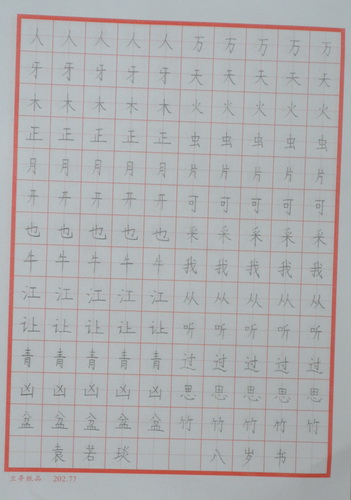 人人人人人万万万万万
牙牙牙牙牙天天天天天
木木木木木火火火火火
正正正正正虫虫虫虫虫
月月月月月片片片片片
开开开开开可可可可可
也也也也也采采采采采
牛牛牛牛牛我我我我我
江江江江江从从从从从
让让让让让听听听听听
青青青青青过过过过过
凶凶凶凶凶思思思思思
盆盆盆盆盆竹竹竹竹竹
袁若琰 八岁书
兰亭纸品 202.77